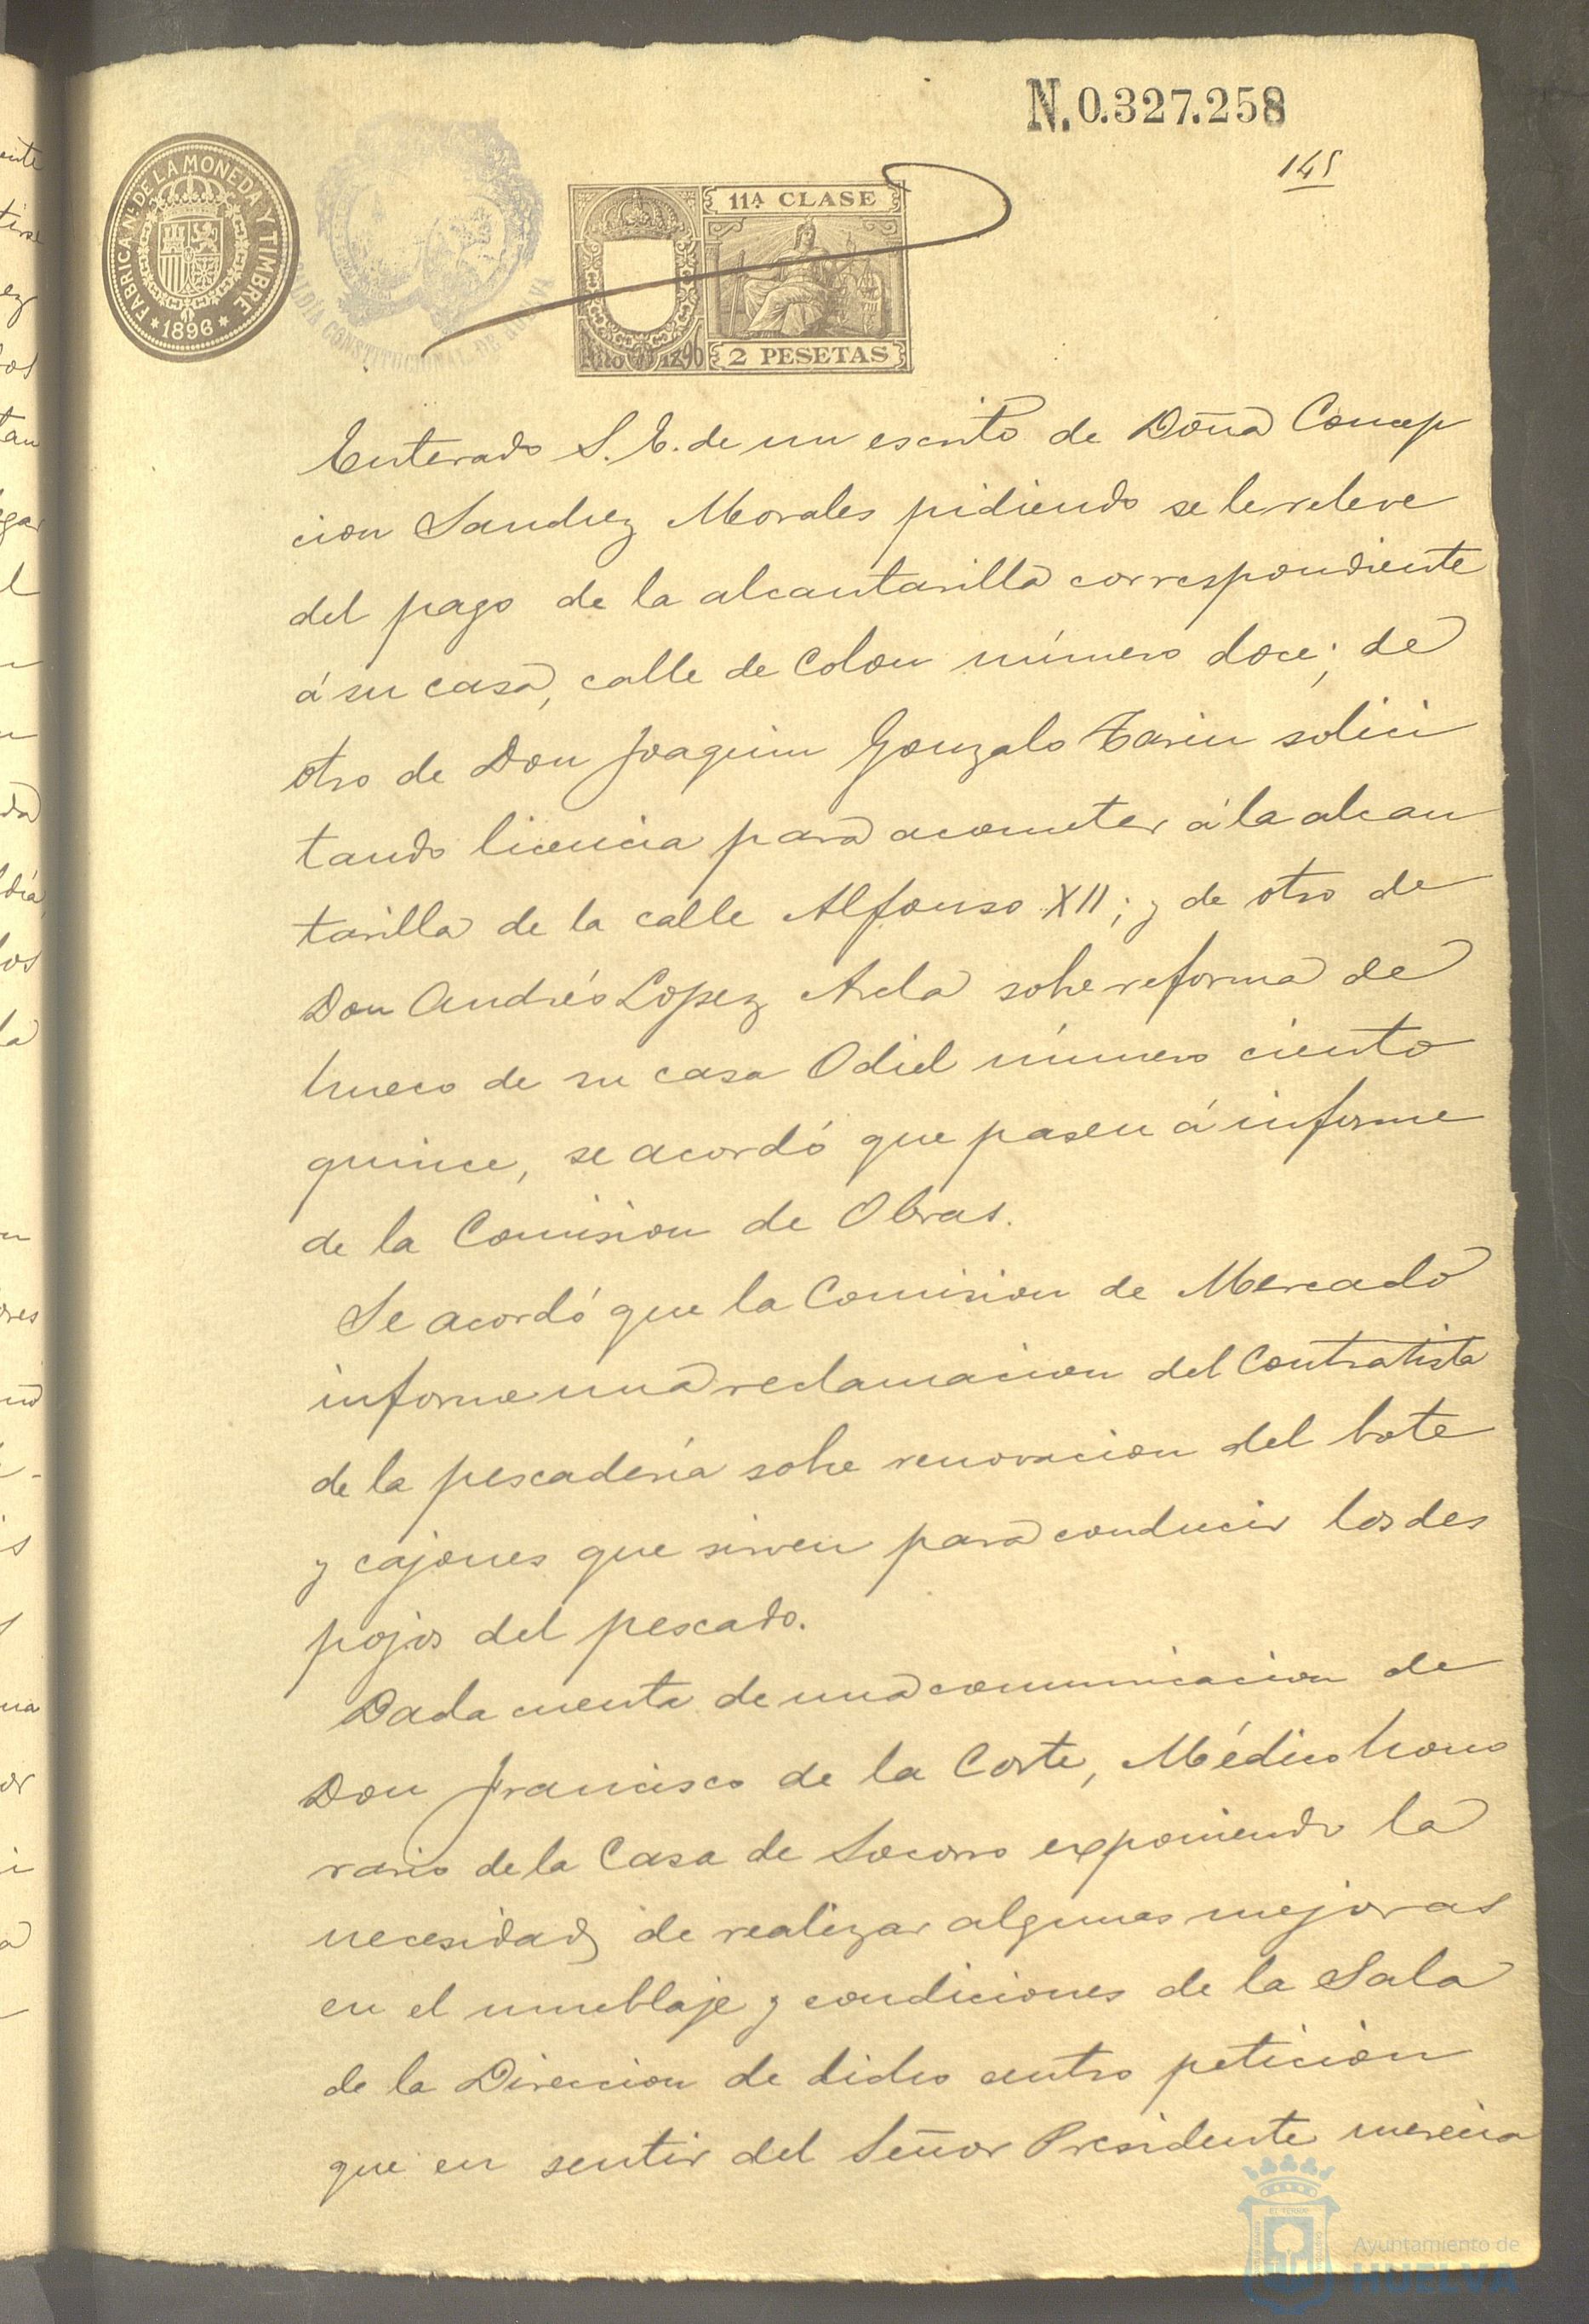 N.0.327.258
145
FABRICA NL. DE LA MONEDA Y TIMBRE
* 1896 *
ALCALDÍA CONSTITUCIONAL DE HUELVA
11A. CLASE
2 PESETAS
Enterado S. E. de un escrito de Doña Concep
cion Sanchez Morales pidiendo se le releve
del pago de la alcantarilla correspondiente
á su casa, calle de Colon número doce; de
otro de Don Joaquin Gonzalo Tarin solici
tando licencia para acometer á la alcan
tarilla de la calle Alfonso XII; y de otro de
Don Andrés Lopez sobre reforma de
hueco de su casa Odiel número ciento
quince, se acordó que pasen á informe
de la Comision de Obras.
Se acordó que la Comision de Mercado
informe una reclamacion del Contratista
de la pescadería sobre renovacion del bote
y cajones que sirven para conducir los des
pojos del pescado.
Dada cuenta de una comunicacion de
Don Francisco de la Corte, Médico hono
rario de la Casa de Socorro exponiendo la
necesidad de realizar algunas mejoras
en el mueblaje y condiciones de la Sala
de la Direccion de dicho centro peticion
que en sentir del Señor Presidente merecia
Ayuntamiento de
HUELVA